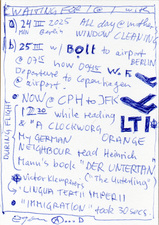 WAITING FOR
a) 24 III 2025 All day @ mother
Mon Berlin WINDOW CLEANING
b) 25 III w/ Bolt to airport
BERLIN
@ 07
Departure to Copenhagen
airport
NOW @ CPH to JFK
while reading
LTI
"A CLOCKWORG
ORANGE
My GERMAN
NEIGHBOUR read Heinrich
Mann's book "DER UNTERTAN
Victor Klemperer's ("The Underling")
"LINGUA TERTII IMPERII
"IMMIGRATION" took 30 secs.
DURING FLIGHT